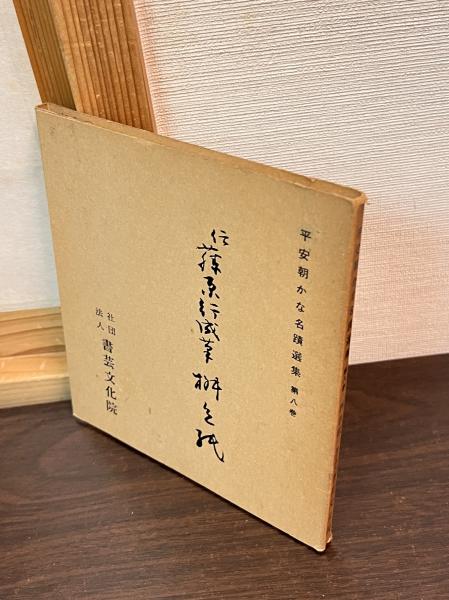 平安朝かな名蹟選集 第八巻
伝藤原行成筆 升色紙
社団法人 書芸文化院